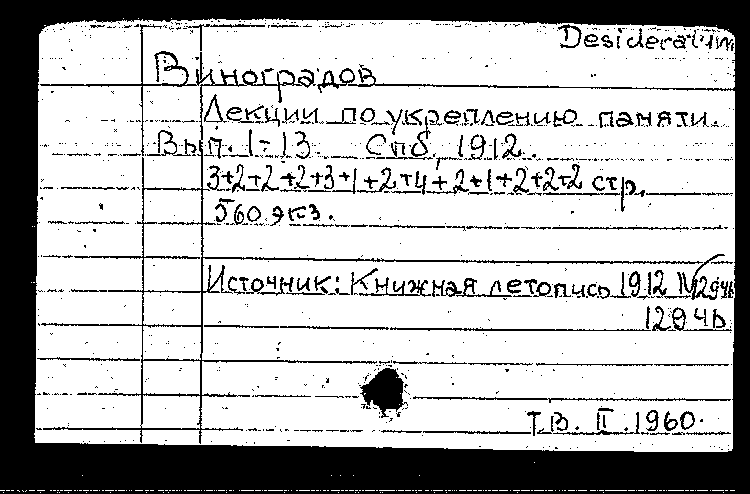 Desideratum
Виноградов
Лекции по укреплению памяти.
Вып. 1-13. Спб, 1912.
3+2+2+2+3+1+2+4+2+1+2+2+2 стр.
560 экз.
Источник: Книжная летопись 1912 №
T.B. II. 1960.